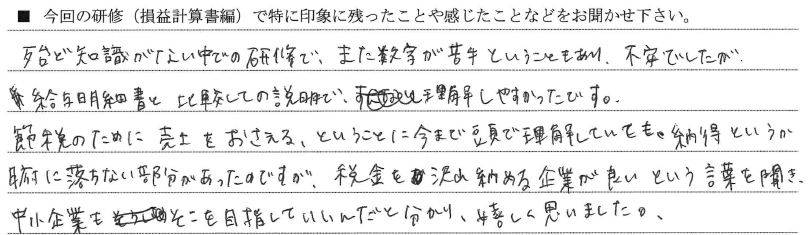 ■ 今回の研修（損益計算書編）で特に印象に残ったことや感じたことなどをお聞かせ下さい。
殆ど知識がない中での研修で、また数字が苦手ということもあり、不安でしたが、
給与明細書と比較しての説明で、理解しやすかったです。
節税のために売上をおさえる、ということに今まで頭で理解していても、納得というか
腑に落ちない部分があったのですが、税金を沢山納める企業が良いという言葉を聞き、
中小企業もそこを目指していいんだと分かり、嬉しく思いました。